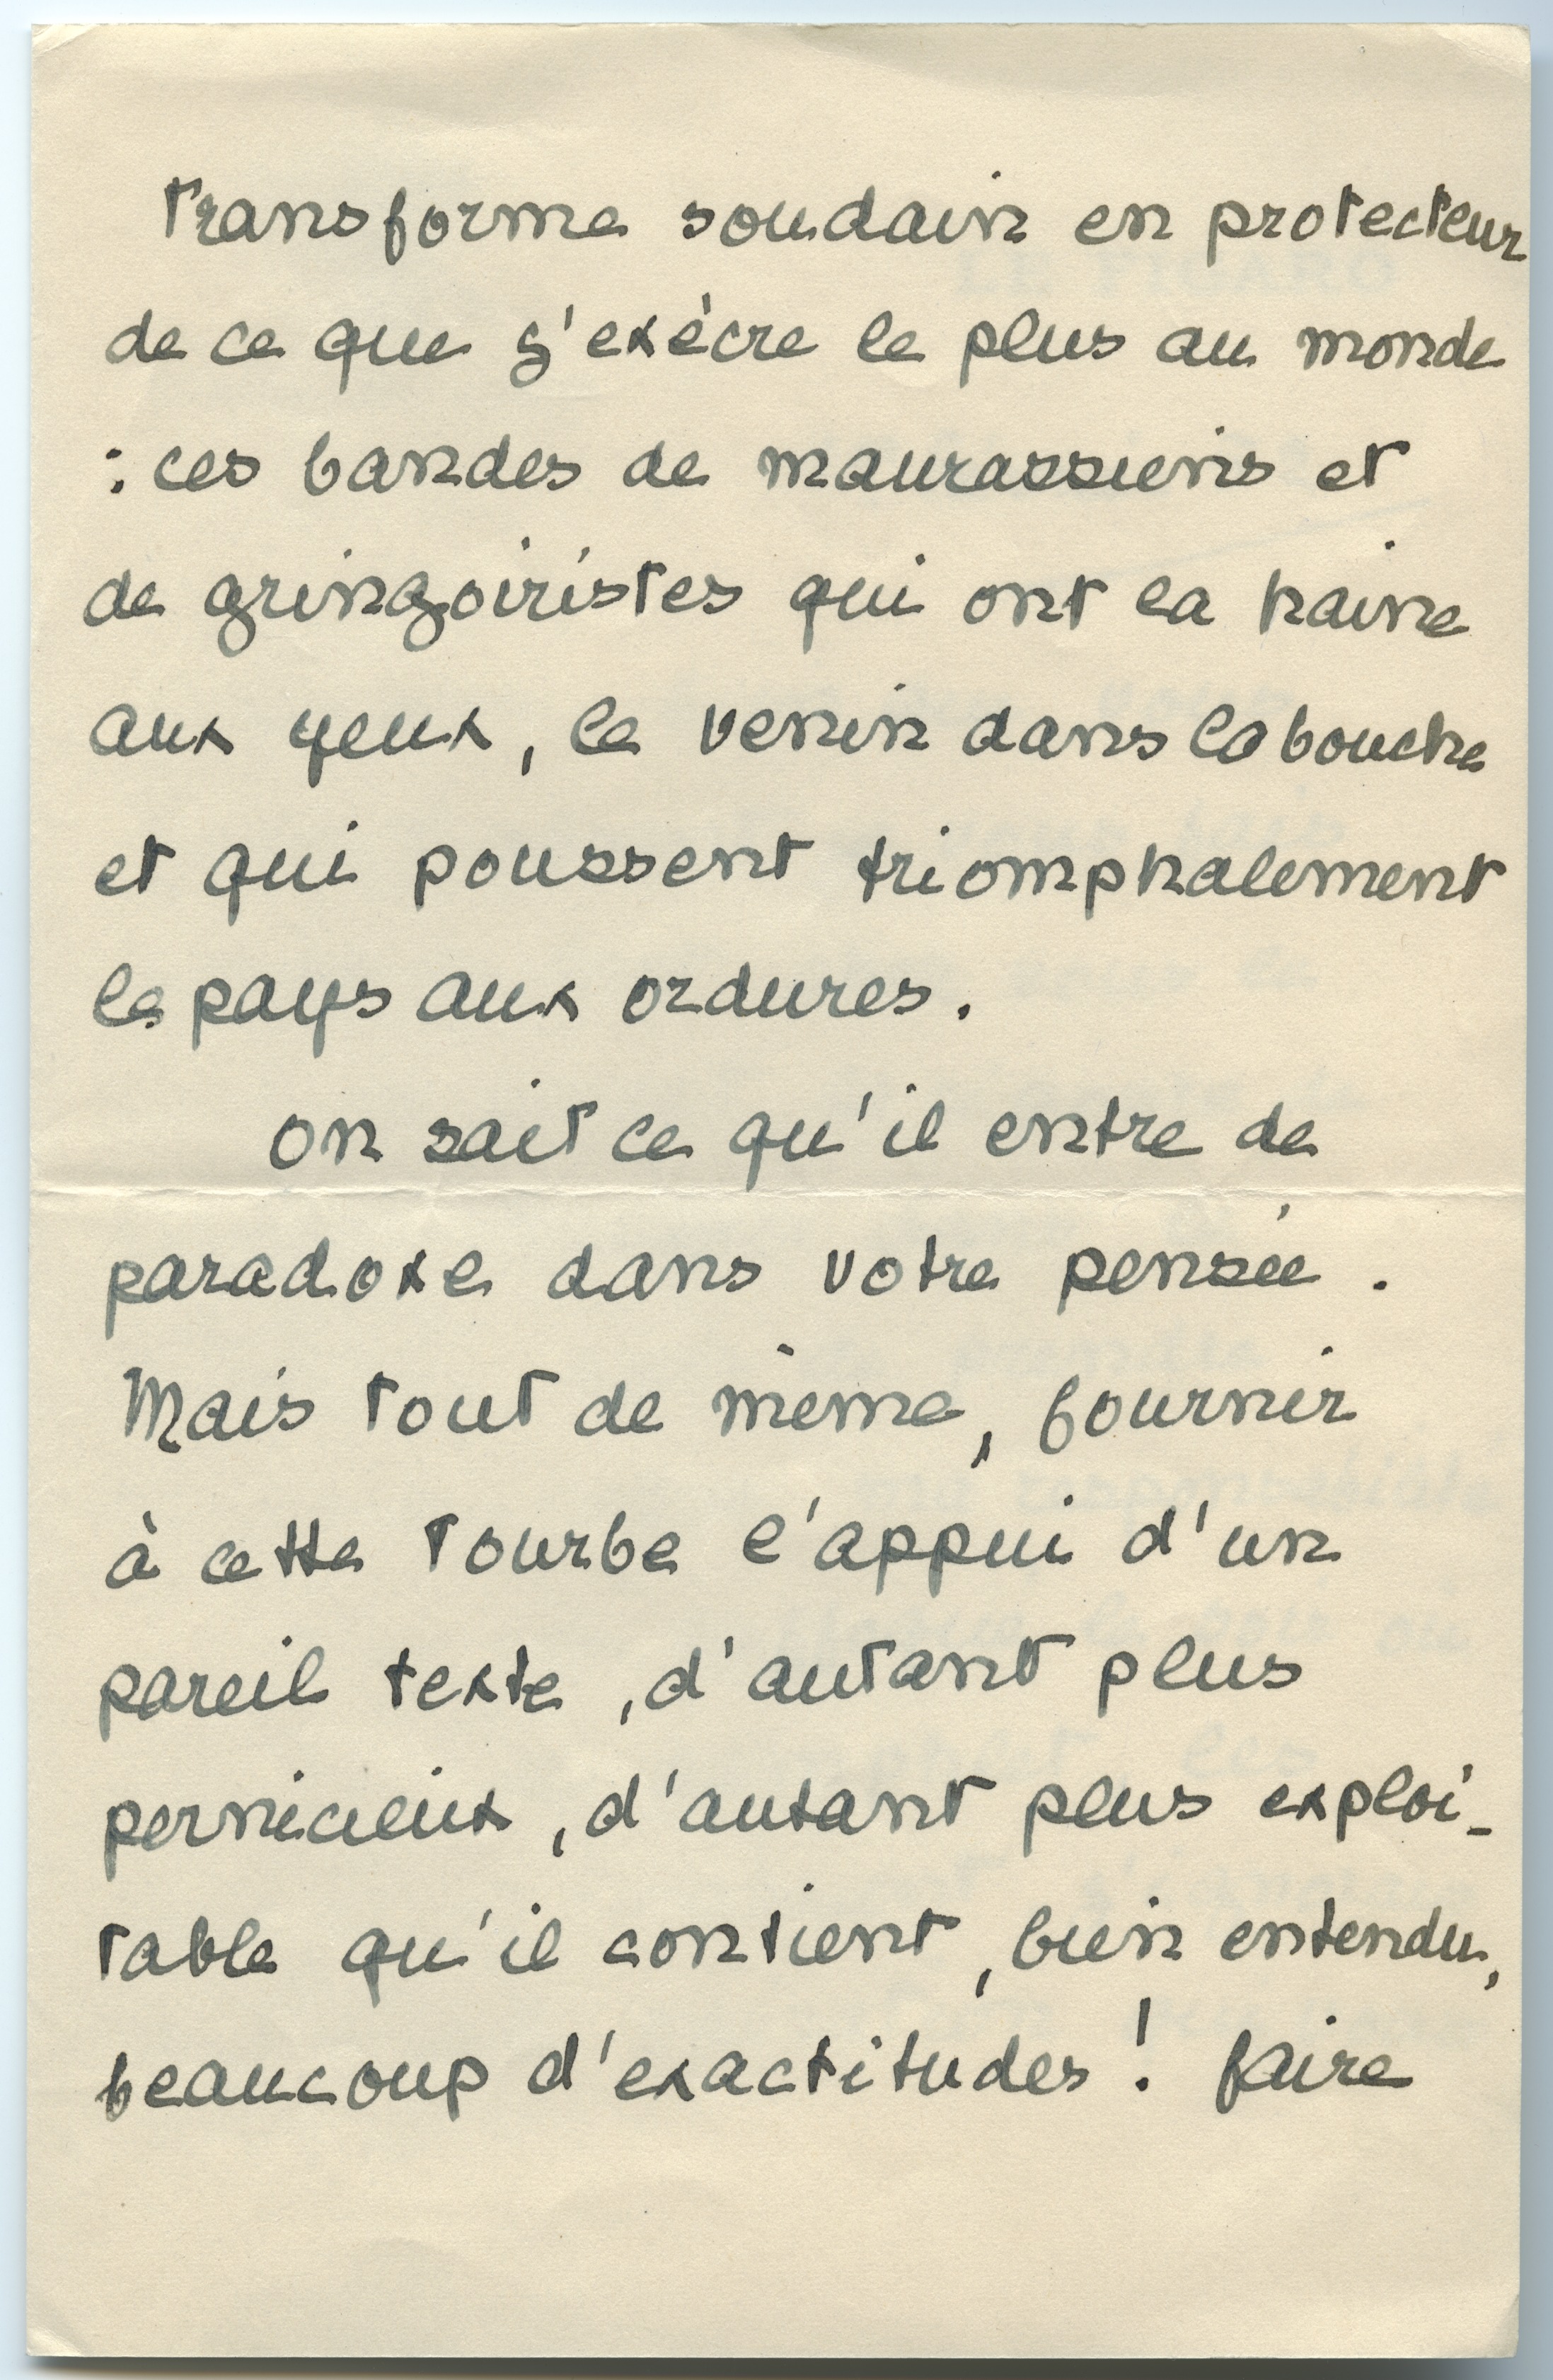 transforme soudain en protecteur
de ce que j'exècre le plus au monde
: ces bandes de maurassiens et
de gringoiristes qui ont la haine
aux yeux, le venin dans la bouche
et qui poussent triomphalement
le pays aux ordures.
On sait ce qu'il entre de
paradoxe dans votre pensée.
Mais tout de même, fournir
à cette tourbe l'appui d'un
pareil texte, d'autant plus
pernicieux, d'autant plus exploi-
table qu'il contient, bien entendu,
beaucoup d'exactitudes ! faire